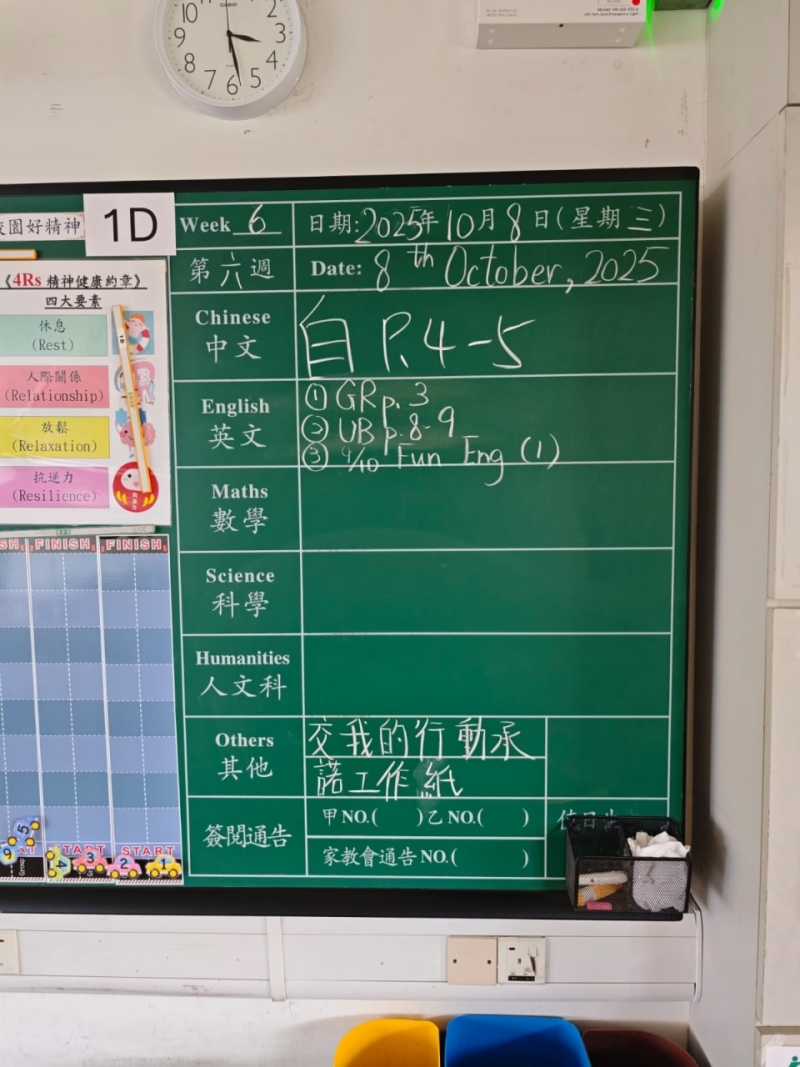 CASIO
12 1 2 3 4 5 6 7 8 9 10
園好精神
1D
Week 6
日期:2025年10月8日(星期三)
第六週
Date: 8th October, 2025
《4Rs 精神健康約章》
四大要素
休息
(Rest)
人際關係
(Relationship)
放鬆
(Relaxation)
抗逆力
(Resilience)
Chinese
中文
自 P.4-5
English
英文
① GR p.3
② UB p.8-9
③ 9/10 Fun Eng (1)
Maths
數學
Science
科學
Humanities
人文科
Others
其他
交我的行動承
諾工作紙
簽閱通告
甲NO.( )乙NO.( )
家教會通告NO.( )
FINISH FINISH
START START
5 4 3 2 1